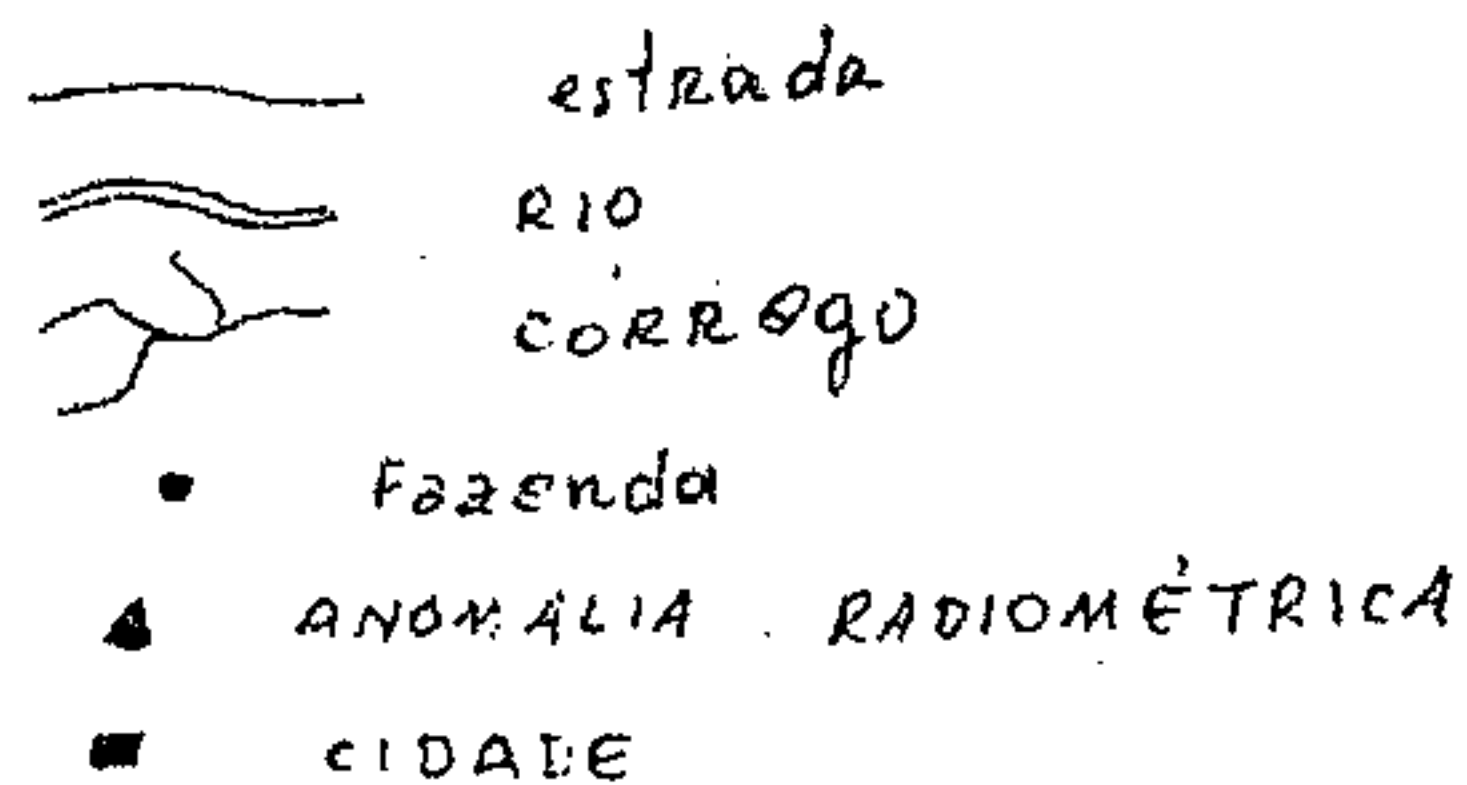 estrada
RIO
córrego
Fazenda
ANOMALIA RADIOMÉTRICA
CIDADE